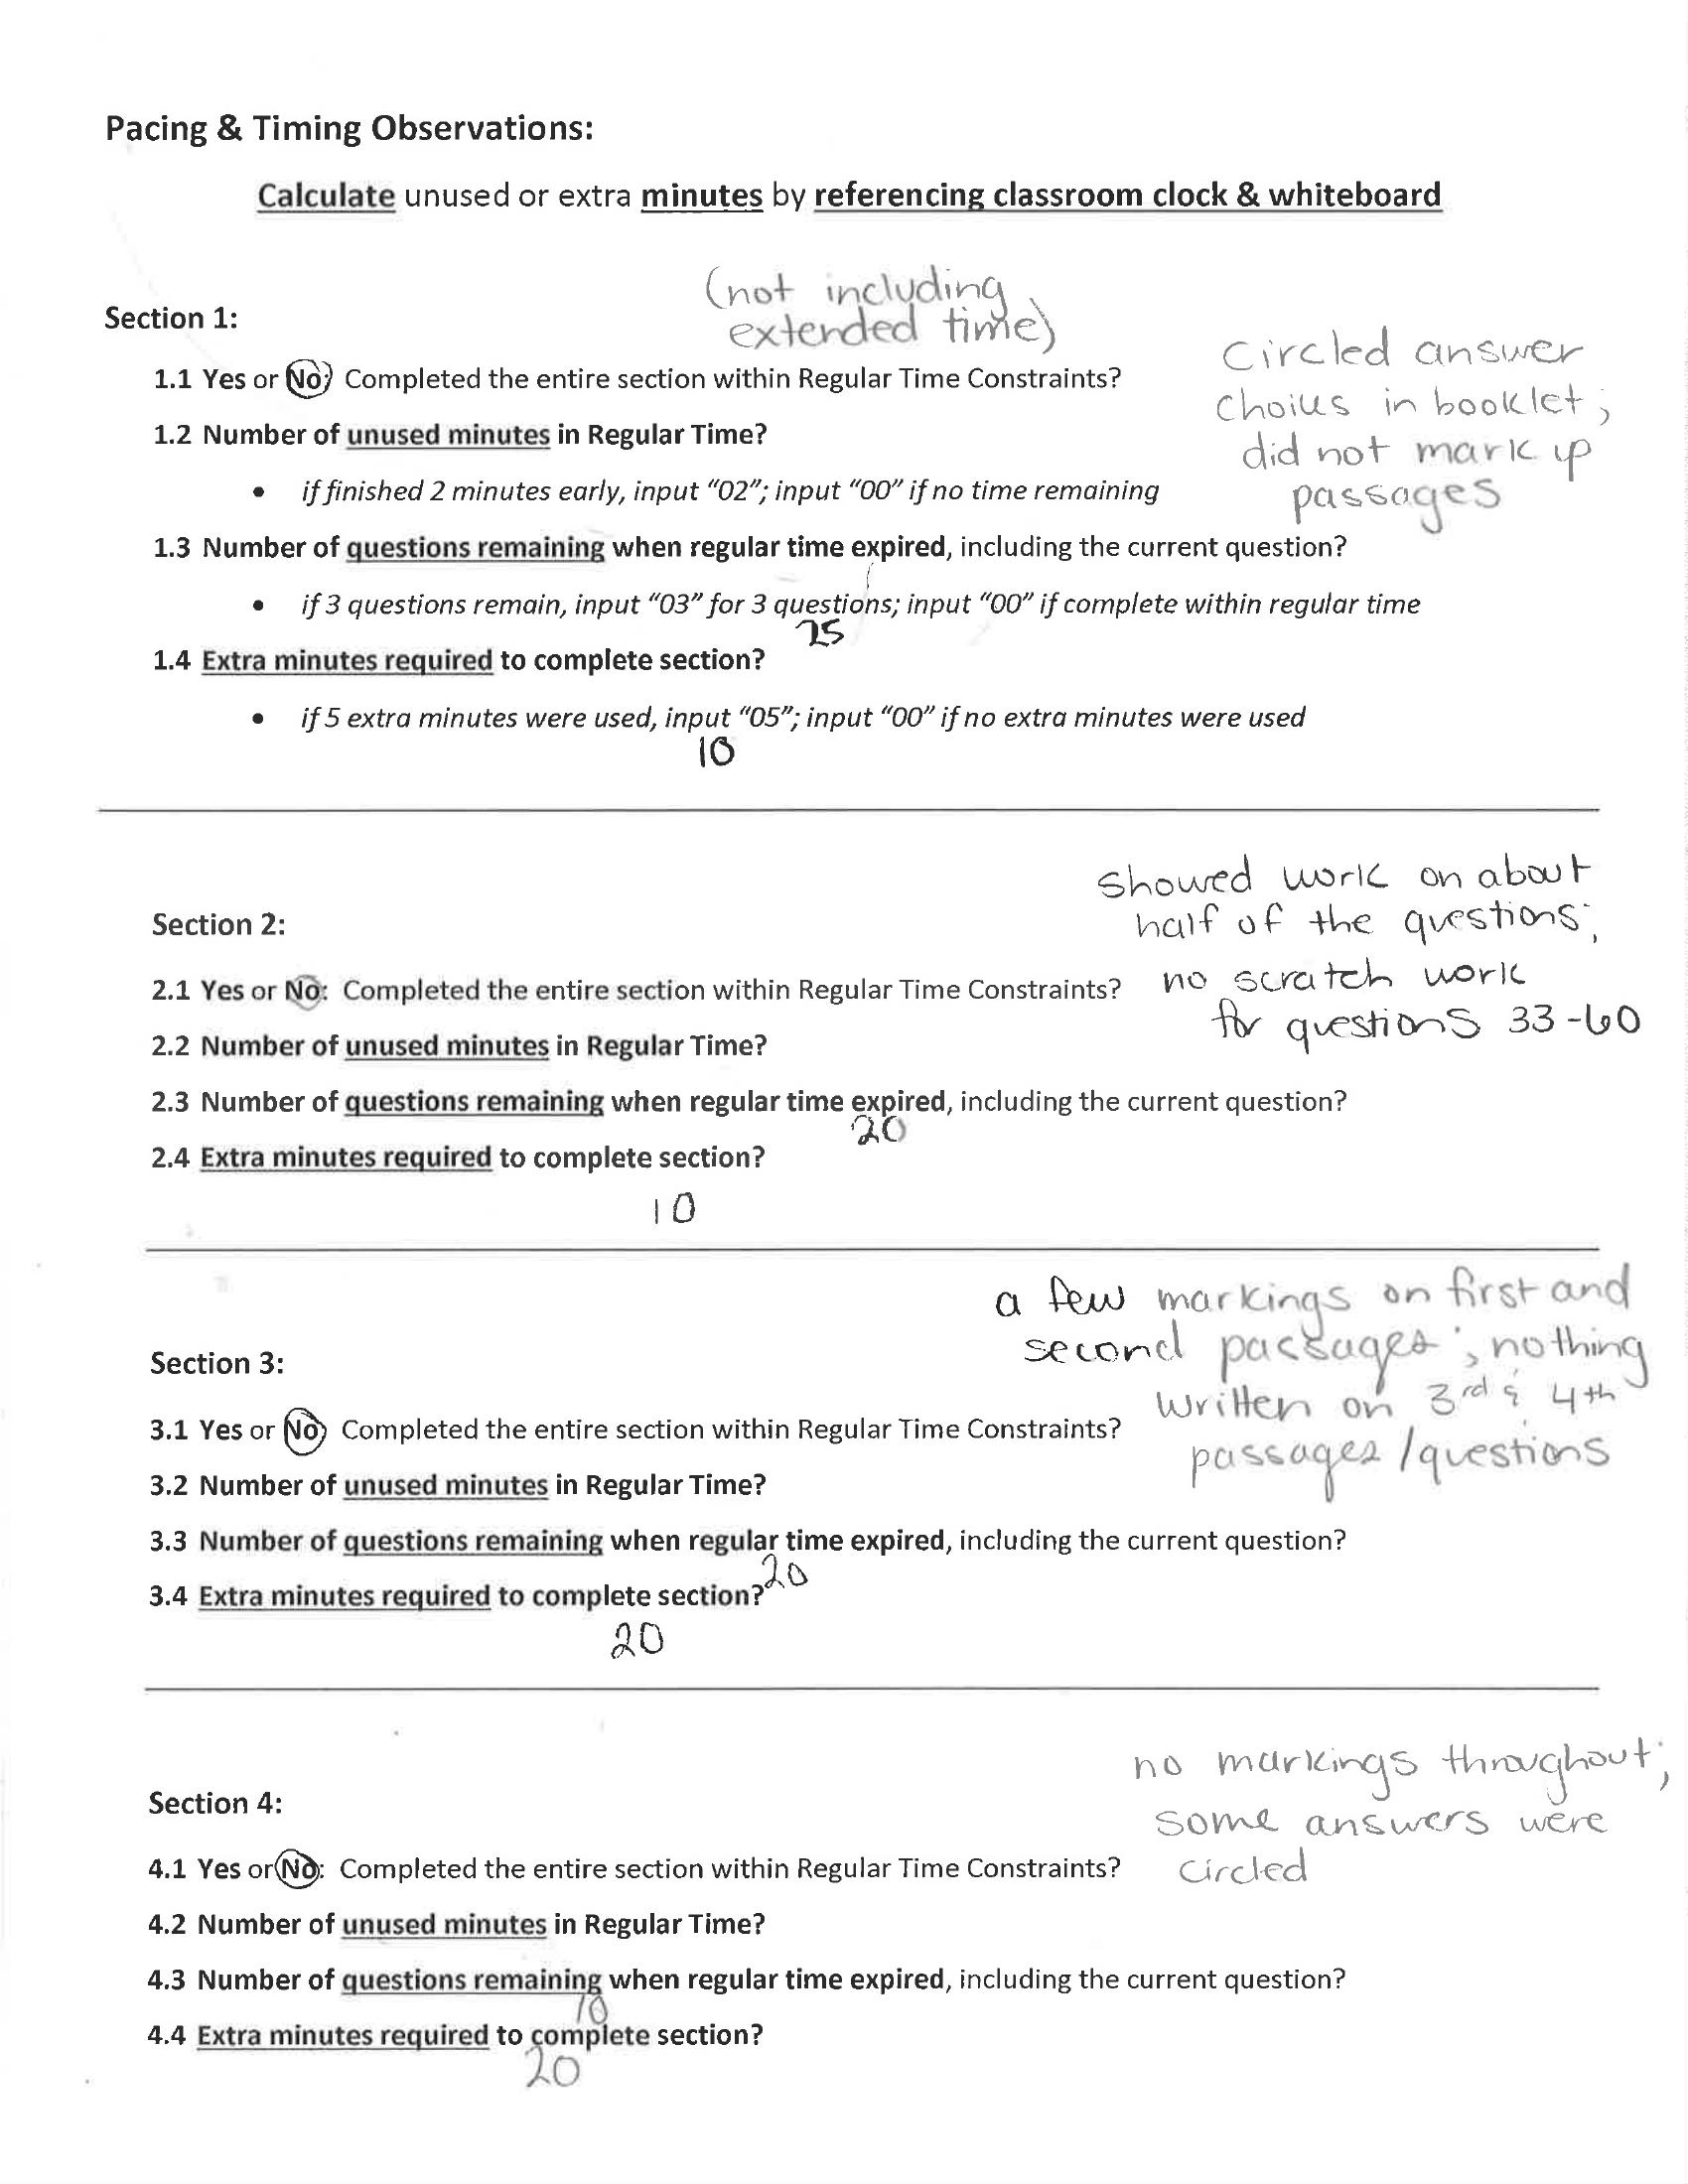 Pacing & Timing Observations:
Calculate unused or extra minutes by referencing classroom clock & whiteboard
(not including
extended time)
Section 1:
Circled answer
choices in booklet;
did not mark up
passages
1.1 Yes or No: Completed the entire section within Regular Time Constraints?
1.2 Number of unused minutes in Regular Time?
• if finished 2 minutes early, input “02”; input “00” if no time remaining
1.3 Number of questions remaining when regular time expired, including the current question?
• if 3 questions remain, input “03” for 3 questions; input “00” if complete within regular time
25
1.4 Extra minutes required to complete section?
• if 5 extra minutes were used, input “05”; input “00” if no extra minutes were used
10
showed work on about
half of the questions;
no scratch work
for questions 33-60
Section 2:
2.1 Yes or No: Completed the entire section within Regular Time Constraints?
2.2 Number of unused minutes in Regular Time?
2.3 Number of questions remaining when regular time expired, including the current question?
20
2.4 Extra minutes required to complete section?
10
a few markings on first and
second passages; nothing
written on 3rd & 4th
passages/questions
Section 3:
3.1 Yes or No: Completed the entire section within Regular Time Constraints?
3.2 Number of unused minutes in Regular Time?
3.3 Number of questions remaining when regular time expired, including the current question?
20
3.4 Extra minutes required to complete section?
20
no markings throughout;
some answers were
circled
Section 4:
4.1 Yes or No: Completed the entire section within Regular Time Constraints?
4.2 Number of unused minutes in Regular Time?
4.3 Number of questions remaining when regular time expired, including the current question?
10
4.4 Extra minutes required to complete section?
20